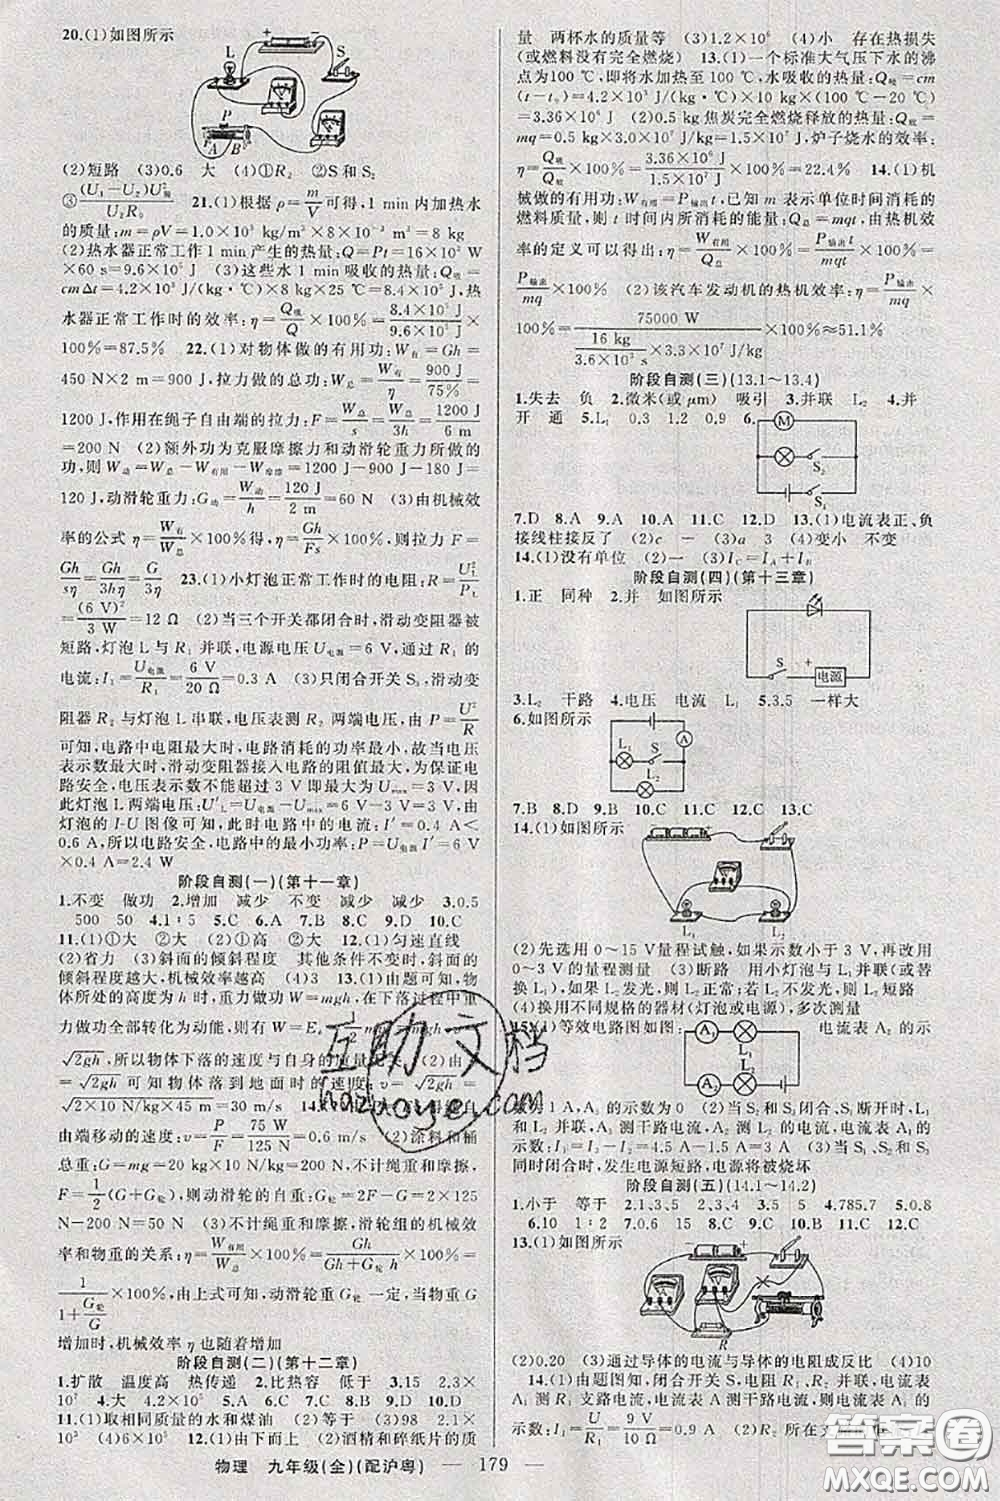 20.(1)如图所示
(2)短路 (3)0.6 大 (4)①R₂ ②S和S₂
③(U₁−U₂)U²额/U₂R₀ 21.(1)根据ρ=m/V可得,1 min内加热水
的质量:m=ρV=1.0×10³ kg/m³×8×10⁻³ m³=8 kg
(2)热水器正常工作1 min产生的热量:Q=Pt=16×10³ W
×60 s=9.6×10⁵ J (3)这些水1 min吸收的热量:Q吸=
cmΔt=4.2×10³ J/(kg·℃)×8 kg×25 ℃=8.4×10⁵ J,热
水器正常工作时的效率:η=Q吸/Q×100%=8.4×10⁵ J/9.6×10⁵ J×
100%=87.5% 22.(1)对物体做的有用功:W有=Gh=
450 N×2 m=900 J,拉力做的总功:W总=W有/η=900 J/75%=
1200 J,作用在绳子自由端的拉力:F=W总/s=W总/3h=1200 J/6 m
=200 N (2)额外功为克服摩擦力和动滑轮重力所做的
功,则W动=W总−W有用−W摩擦=1200 J−900 J−180 J=
120 J,动滑轮重力:G动=W动/h=120 J/2 m=60 N (3)由机械效
率的公式η=W有/W总×100%得,η=Gh/Fs×100%,则拉力F=
Gh/sη=Gh/3hη=G/3η 23.(1)小灯泡正常工作时的电阻:R=U²L/PL
=(6 V)²/3 W=12 Ω (2)当三个开关都闭合时,滑动变阻器被
短路,灯泡L与R₁并联,电源电压U电源=6 V,通过R₁的
电流:I₁=U电源/R₁=6 V/20 Ω=0.3 A (3)只闭合开关S₃,滑动变
阻器R₂与灯泡L串联,电压表测R₂两端电压,由P=U²/R
可知,电路中电阻最大时,电路消耗的功率最小,故当电压
表示数最大时,滑动变阻器接入电路的阻值最大,为保证电
路安全,电压表示数不能超过3 V即最大为Umax=3 V,因
此灯泡L两端电压:U′L=U电源−Umax=6 V−3 V=3 V,由
灯泡的I-U图像可知,此时电路中的电流:I′=0.4 A<
0.6 A,所以电路安全,电路中的最小功率:P=U电源I′=6 V
×0.4 A=2.4 W
阶段自测(一)(第十一章)
1.不变 做功 2.增加 减少 不变 减少 减少 3.0.5
500 50 4.1∶5 5.C 6.A 7.B 8.C 9.D 10.C
11.(1)①大 ②大 (2)①高 ②大 12.(1)匀速直线
(2)省力 (3)斜面的倾斜程度 其他条件不变时,斜面的
倾斜程度越大,机械效率越高 (4)3 13.(1)由题可知,物
体所处的高度为h时,重力做功W=mgh,在下落过程中重
力做功全部转化为动能,则有W=Ek
√2gh,所以物体下落的速度与自身的质量无关 (2)由
=√2gh可知物体落到地面时的速度:v=√2gh=
√2×10 N/kg×45 m=30 m/s
由端移动的速度:v=P/F=75 W/125 N=0.6 m/s (2)涂料和桶
总重:G=mg=20 kg×10 N/kg=200 N,不计绳重和摩擦,
F=1/2(G+G轮),则动滑轮的自重:G轮=2F−G=2×125
N−200 N=50 N (3)不计绳重和摩擦,滑轮组的机械效
率和物重的关系:η=W有用/W总×100%=Gh/Gh+G轮h×100%=
1/1+G轮/G×100%,由上式可知,动滑轮重G轮一定,当物重G
增加时,机械效率η也随着增加
阶段自测(二)(第十二章)
1.扩散 温度高 热传递 2.比热容 低于 3.15 2.3×
10⁷ 4.大 5.C 6.D 7.D 8.C 9.D 10.D
11.(1)取相同质量的水和煤油 (2)等于 (3)98 2.1×
10³ (4)6×10⁵ 12.(1)由下而上 (2)酒精和碎纸片的质
量 两杯水的质量 等 (3)1.2×10⁴ (4)小 存在热损失
(或燃料没有完全燃烧) 13.(1)一个标准大气压下水的沸
点为100 ℃,即将水加热至100 ℃,水吸收的热量:Q吸=cm
(t−t₀)=4.2×10³ J/(kg·℃)×10 kg×(100 ℃−20 ℃)
=3.36×10⁶ J (2)0.5 kg焦炭完全燃烧释放的热量:Q放=
mq=0.5 kg×3.0×10⁷ J/kg=1.5×10⁷ J,炉子烧水的效率:
η=Q吸/Q放×100%=3.36×10⁶ J/1.5×10⁷ J×100%=22.4% 14.(1)机
械做的有用功:W有用=P输出t,已知m表示单位时间消耗的
燃料质量,则t时间内所消耗的能量:Q总=mqt,由热机效
率的定义可以得出:η=W有用/Q总×100%=P输出t/mqt×100%=
P输出/mq×100% (2)该汽车发动机的热机效率:η=P输出/mq×
100%=75000 W/(16 kg/3.6×10³ s×3.3×10⁷ J/kg)×100%≈51.1%
阶段自测(三)(13.1~13.4)
1.失去 负 2.微米(或μm) 吸引 3.并联 L₂ 4.并
开 通 5.L₁ 0.3 1.2 0.9 6.
7.D 8.A 9.A 10.A 11.C 12.D 13.(1)电流表正、负
接线柱接反了 (2)c − (3)a 3 (4)变小 不变
14.(1)没有单位 (2)一 (3)IC=IA+IB
阶段自测(四)(第十三章)
1.正 同种 2.并 如图所示
3.L₂ 干路 4.电压 电流 L₁ 5.3.5 一样大
6.如图所示
7.B 8.D 9.B 10.C 11.C 12.C 13.C
14.(1)如图所示
(2)先选用0~15 V量程试触,如果示数小于3 V,再改用
0~3 V的量程测量 (3)断路 用小灯泡与L₁并联(或电
源),如果L₂发光,则L₂正常;若L₂不发光,则L₂短路
(4)换用不同规格的器材(灯泡或电源),多次测量
15.(1)等效电路图如图: 电流表A₂的示
数为1 A,A₁的示数为0 (2)当S₂和S₃闭合、S₁断开时,L₁
和L₂并联,A₁测干路电流,A₂测通过L₂的电流,电流表A₂的
示数:I₂=I−I₁=4.5 A−1.5 A=3 A (3)当S₁、S₂、S₃
同时闭合时,发生电源短路,电源将被烧坏
阶段自测(五)(14.1~14.2)
1.小于 等于 2.1、3、5 2、4、5 3.5 4.785.7 5.0.8
6.10 1∶2 7.0.6 15 8.C 9.D 10.D 11.B 12.C
13.(1)如图所示
(2)0.20 (3)通过导体的电流与导体的电阻成反比 (4)10
14.(1)由题图知,闭合开关S,电阻R₁、R₂并联,电流表
A₁测R₁支路电流,电流表A测干路电流,所以电流表A₁的
示数:I₁=U/R₁=9 V/10 Ω=0.9 A
物理 九年级(全)(配沪粤) — 179 —
互助文档
hazuoye.com
答案圈
MXQE.COM